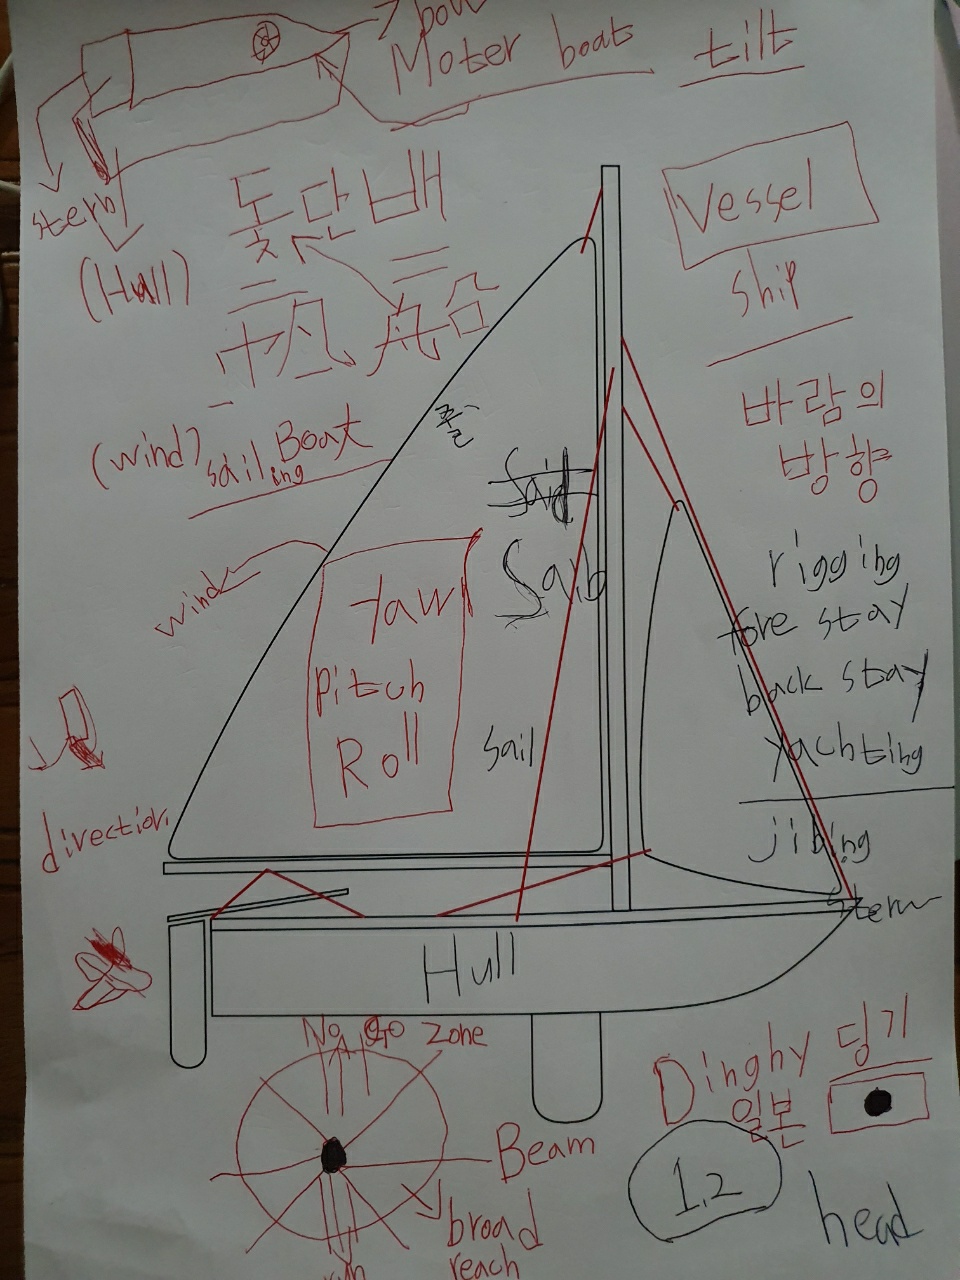 bow
Moter boats
tilt
stern
(Hull)
돛단배
Vessel
ship
(wind) sailing Boat
바람의
방향
wind
Yaw
pitch
Roll
sail
rigging
fore stay
back stay
yachting
jibing
stern
direction
Hull
No go zone
Beam
broad
reach
run
Dinghy 딩기
일본
1,2
head